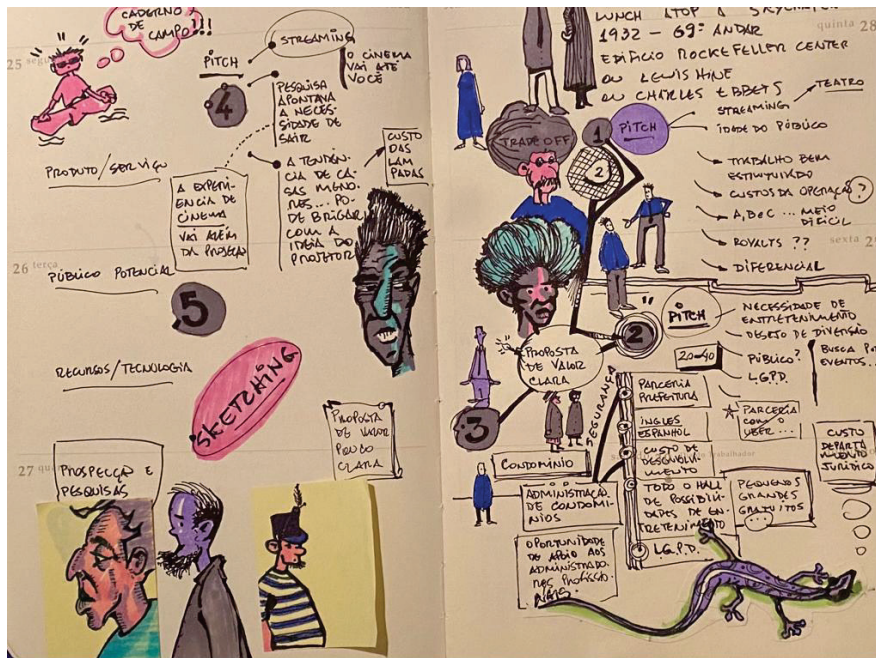 CADERNO
DE
CAMPO!!!
25
PITCH
STREAMING
O CINEMA
VAI ATÉ
VOCÊ
4
PESQUISA
APONTAVA
A NECES-
SIDADE DE
SAIR
CUSTO
DAS
LÂM
PADAS
PRODUTO/SERVIÇO
A EXPERI-
ENCIA DE
CINEMA
VAI ALÉM
DA PROJEÇÃO
A TENDÊN-
CIA DE CA-
SAS MENO-
RES... PO-
DE BRIGAR
COM A
IDEIA DO
PROJETOR
26 terça
PÚBLICO POTENCIAL
5
RECURSOS/TECNOLOGIA
SKETCHING
PROPOSTA
DE VALOR
POUCO
CLARA
27
PROSPECÇÃO E
PESQUISAS
LUNCH ATOP A
quinta 28
1932 - 69º ANDAR
EDIFÍCIO ROCKEFELLER CENTER
OU LEWIS HINE
OU CHARLES EBBETS
TEATRO
TRADE OFF
1
PITCH
STREAMING
IDADE DO PÚBLICO
2
TRABALHO BEM
ESTRUTURADO
CUSTOS DA OPERAÇÃO ?
A, B e C ... MEIO
DIFÍCIL
sexta
ROYALTS ??
DIFERENCIAL
2
PITCH
NECESSIDADE DE
ENTRETENIMENTO
DESEJO DE DIVERSÃO
20-40
PÚBLICO?
L.G.P.D.
BUSCA POR
EVENTOS...
PROPOSTA
DE VALOR
CLARA
3
SEGURANÇA
PARCERIA
PREFEITURA
INGLES
ESPANHOL
CUSTO DE
DESENVOLVI-
MENTO
PARCERIA
COM O
UBER...
CUSTO
DEPARTA
MENTO
JURÍDICO
CONDOMÍNIO
ADMINISTRAÇÃO
DE CONDOMÍ-
NIOS
TODO O HALL
DE POSSIBILI-
DADES DE EN-
TRETENIMENTO
PEQUENOS
GRANDES
GRATUITOS
...
L.G.P.D.
OPORTUNIDADE
DE APOIO AOS
ADMINISTRADO-
RES PROFISSIO-
NAIS.